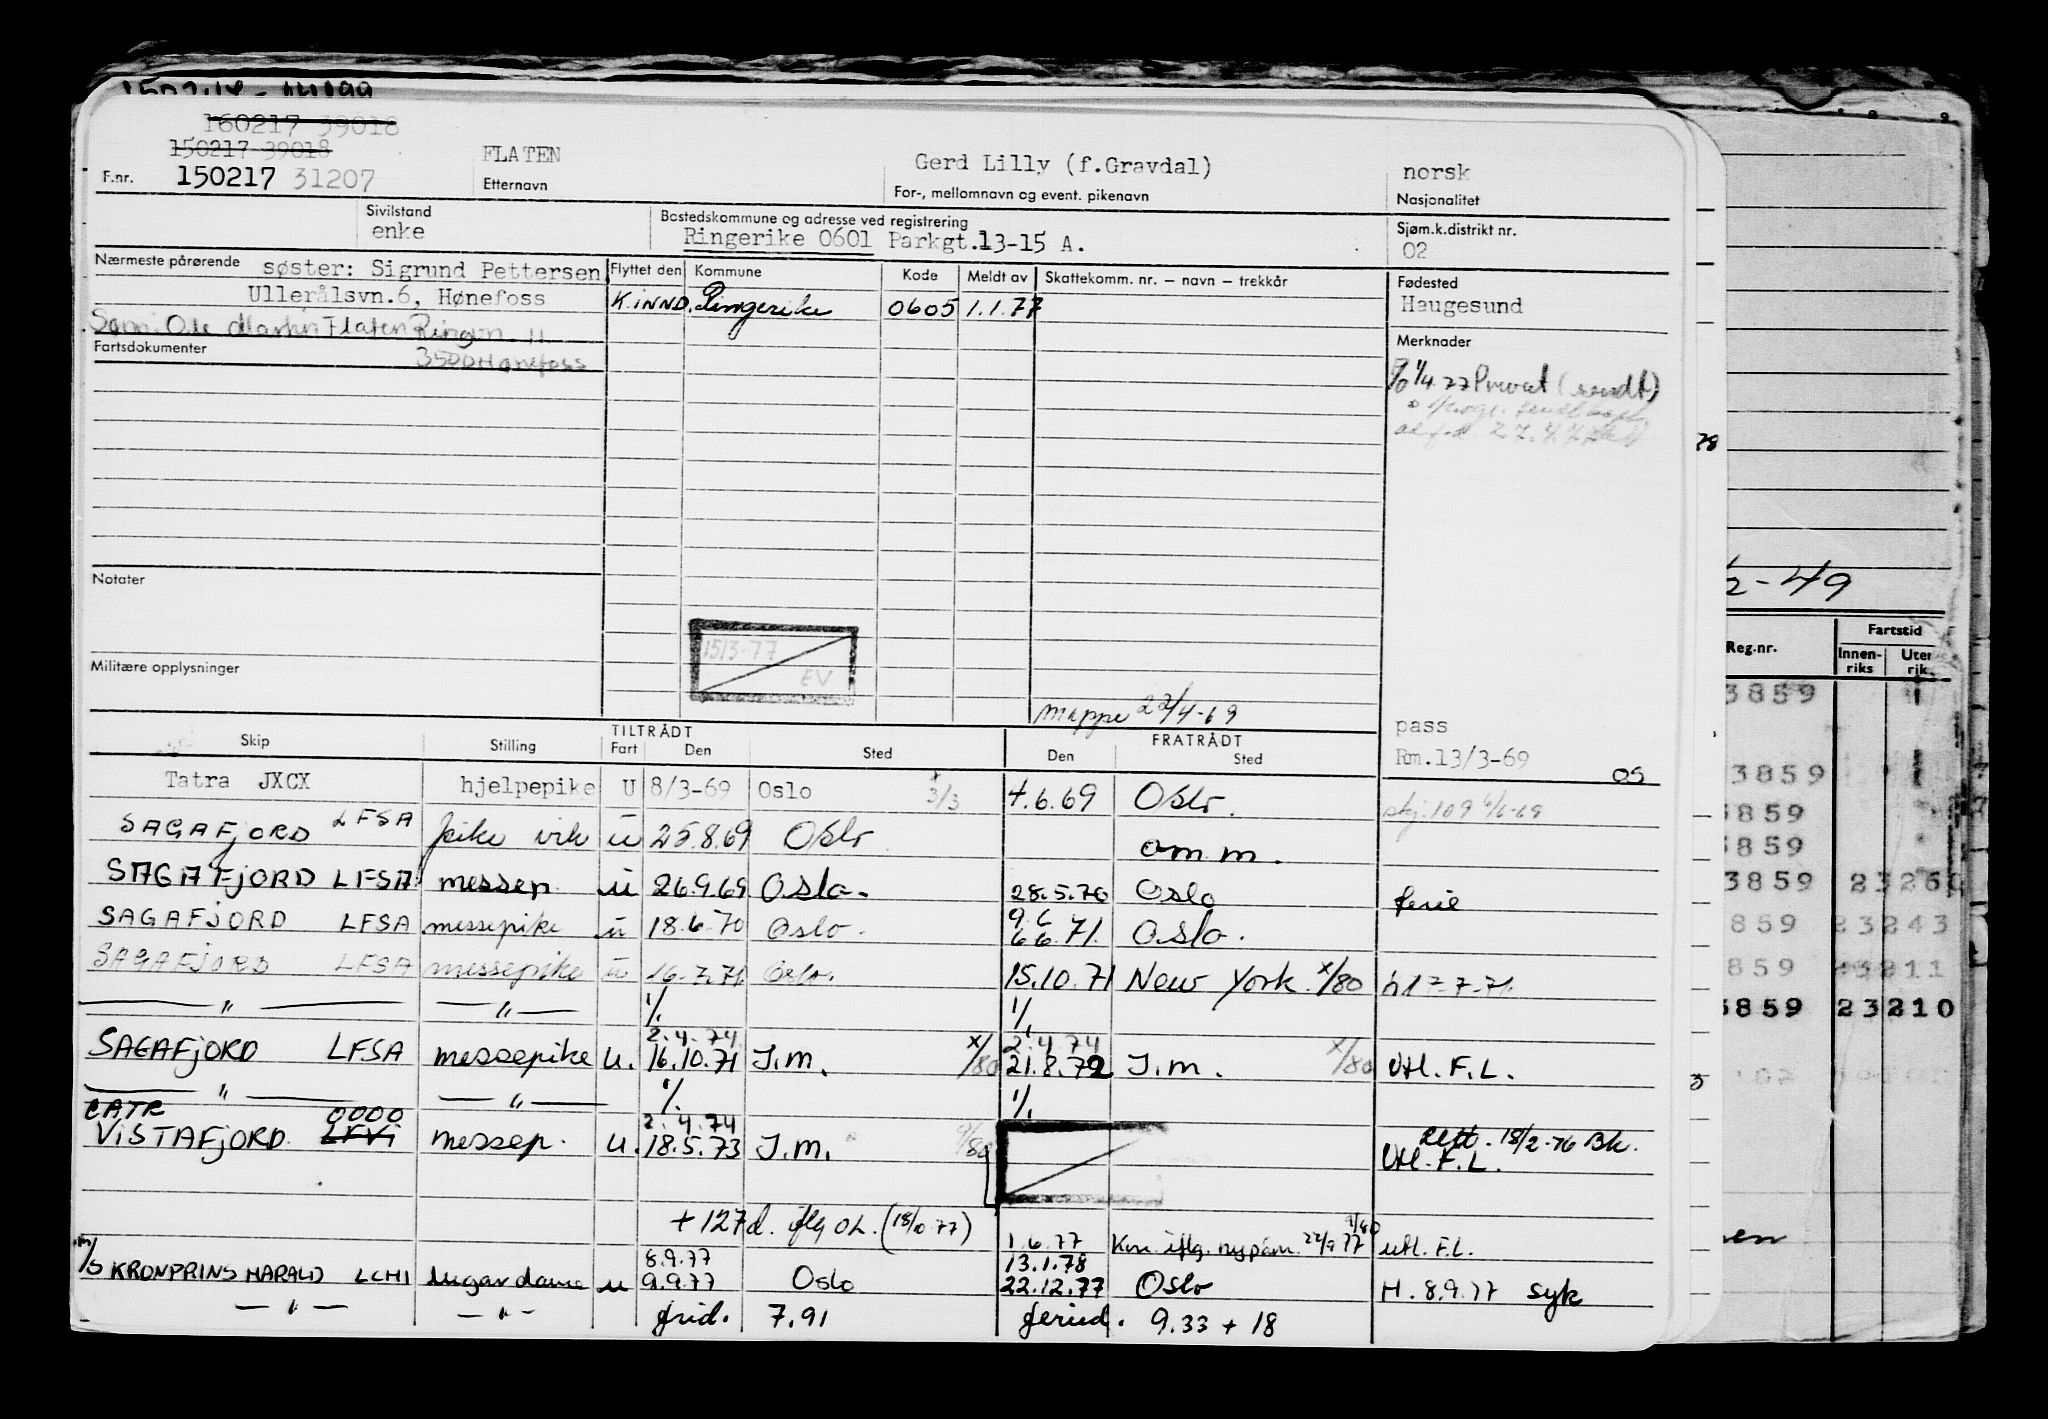 160217 39018
150217 39018
F.nr. 150217 31207
FLATEN
Etternavn
Gerd Lilly (f.Gravdal)
For-, mellomnavn og event. pikenavn
norsk
Nasjonalitet
Sivilstand
enke
Bostedskommune og adresse ved registrering
Ringerike 0601 Parkgt.13-15 A.
Sjøm.k.distrikt nr.
02
Nærmeste pårørende søster: Sigrund Pettersen
Ullerålsvn.6, Hønefoss
Flyttet den Kommune Kode Meldt av Skattekomm. nr. — navn — trekkår
K.INND. Ringerike 0605 1.1.77
Fødested
Haugesund
Ole Martin Flaten
3500 Hønefoss
Fartsdokumenter
Merknader
1/4.77 Privat (sendt)
Notater
15/3-77
EV
Militære opplysninger
mappe 22/4-69
pass
Rm.13/3-69
OS
TILTRÅDT FRATRÅDT
Skip Stilling Fart Den Sted Den Sted
Tatra JXCX hjelpepike U 8/3-69 Oslo 3/3 4.6.69 Oslo.
SAGAFJORD LFSA pike vik u 25.8.69 Oslo am.m.
SAGAFJORD LFSA messep. u 26.9.69 Oslo. 28.5.70 Oslo ferie
SAGAFJORD LFSA messepike u 18.6.70 Oslo. 9.6 6.6.71. Oslo.
SAGAFJORD LFSA messepike u 16.7.71 Oslo. 15.10.71 New York x/80 h 17-7-71.
— " — — " — 1/. 1/.
2.4.74 2.4.74
SAGAFJORD LFSA messepike u. 16.10.71 J.m. x/80 21.8.72 J.m. x/80 Utl. F.L.
— " — — " — 1/. 1/.
0000 2.4.74
VISTAFJORD LFVI messep. u. 18.5.73 J.m. 9/80
rett. 18/2-76 Bk.
Utl. F.L.
+ 127 d. iflg OL. (18/10.77)
1.6.77 22/9 77 utl. F.L.
8.9.77 13.1.78
M/S KRONPRINS HARALD LCHI lugardame u 9.9.77 Oslo 22.12.77 Oslo H. 8.9.77 syk
— " — — " — frid. 7.91 feried. 9.33 + 18
78
1/2-49
Reg.nr. Fartstid
Innen-
riks
3859
3859
3859
3859
3859 2326
859 23243
859 23211
3859 23210